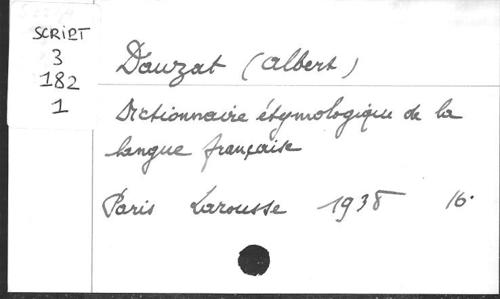 SCRIPT
3
182
1
Dauzat (Albert)
Dictionnaire étymologique de la
langue française
Paris Larousse 1938 16.